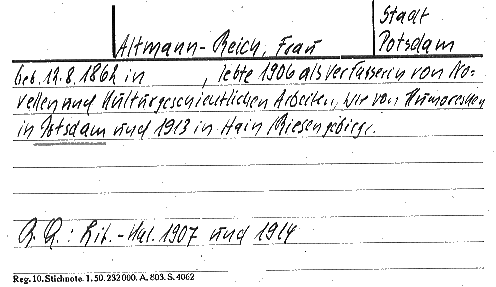 Stadt
Altmann-Reich, Frau Potsdam
geb. 12.8.1862 in , lebte 1906 als Verfasserin von No-
vellen und Kulturgeschichtlichen Arbeiten, wie von Humoresken
in Potsdam und 1913 in Hain Riesengebirge.
Q.Q.: Lit.-Kal. 1907 und 1914
Reg. 10. Stichnote. 1. 50. 232000. A. 803. S. 4062